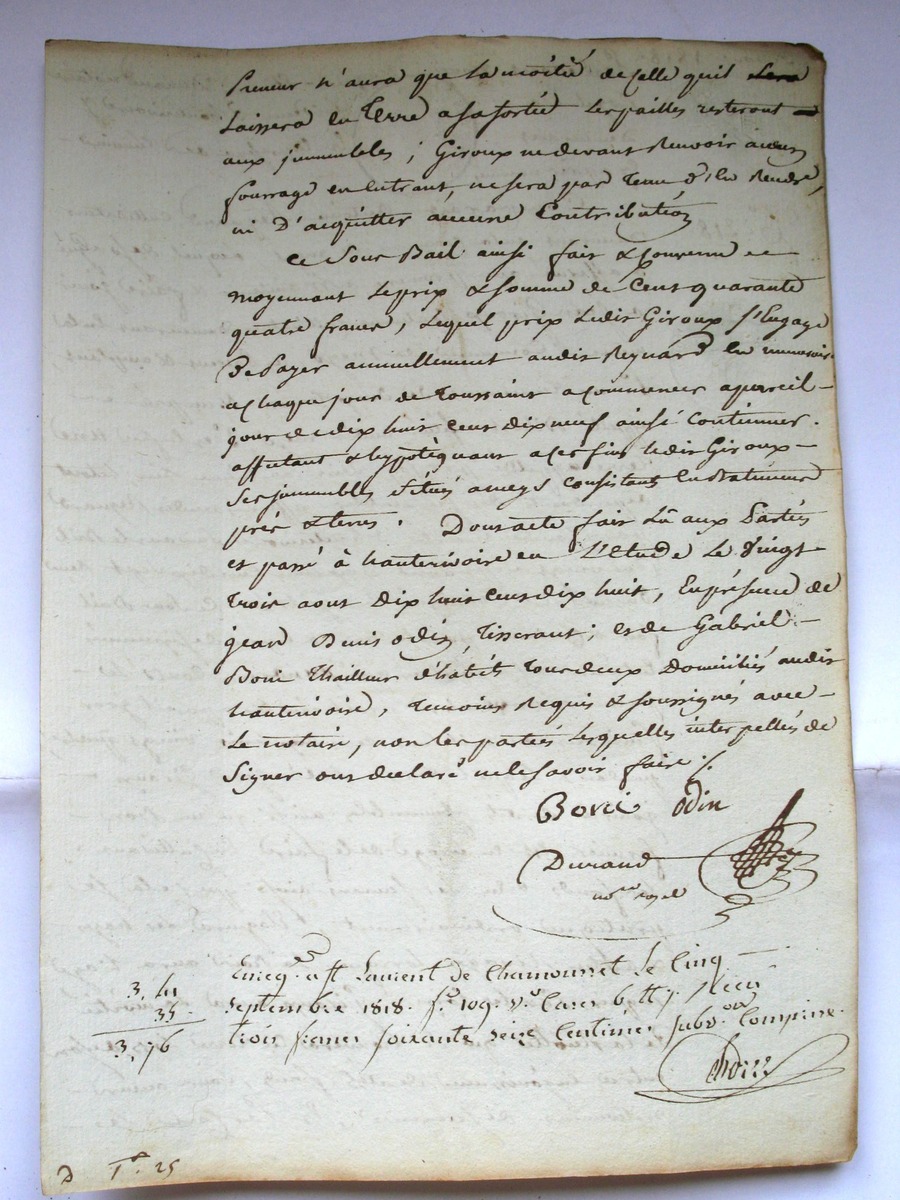 Preneur n'aura que la moitié de celle quil
Laissera en Terre a sa sortie Les pailles resteront
aux immeubles ; Giroux ne devant Recevoir aucun
fourrage en entrant, ne sera pas tenu d'en Rendre,
ni D'acquitter aucune Contribution
Ce Sous Bail ainsi fait & convenu
moyennant Le prix & somme de Cent quarante
quatre francs, Lequel prix Ledit Giroux s'Engage
De Payer annuellement audit Reynard En
a chaque jour de Toussaint a commencer a pareil
jour de dix huit cent dix neuf ainsi continuer.
affectant & hypotèquant a ces fins ledit Giroux
Ses immeubles situés consistant En Batiment
prés & terres. Dont acte fait Lû aux Parties
et passé à hauterivoire en L'Etude Le Vingt
Trois aout Dix huit cent dix huit, En présence de
jean Denis odin, Tisserant ; et de Gabriel
Boni Thailleur d'habits Tous deux Domiciliés audit
hauterivoire, Temoins Requis & soussignés avec
Le notaire, non les parties Lesquelles interpellés de
Signer ont déclaré ne le savoir faire ./.
Boni Odin
Durand
no.re royal
Enreg.é a St Laurent de Chamousset Le Cinq
Septembre 1818. f.o 109. v.o Cases 6 et 7. Reçu
trois francs soixante seize Centimes subv.on Comprise.
3. 41
35.
3. 76